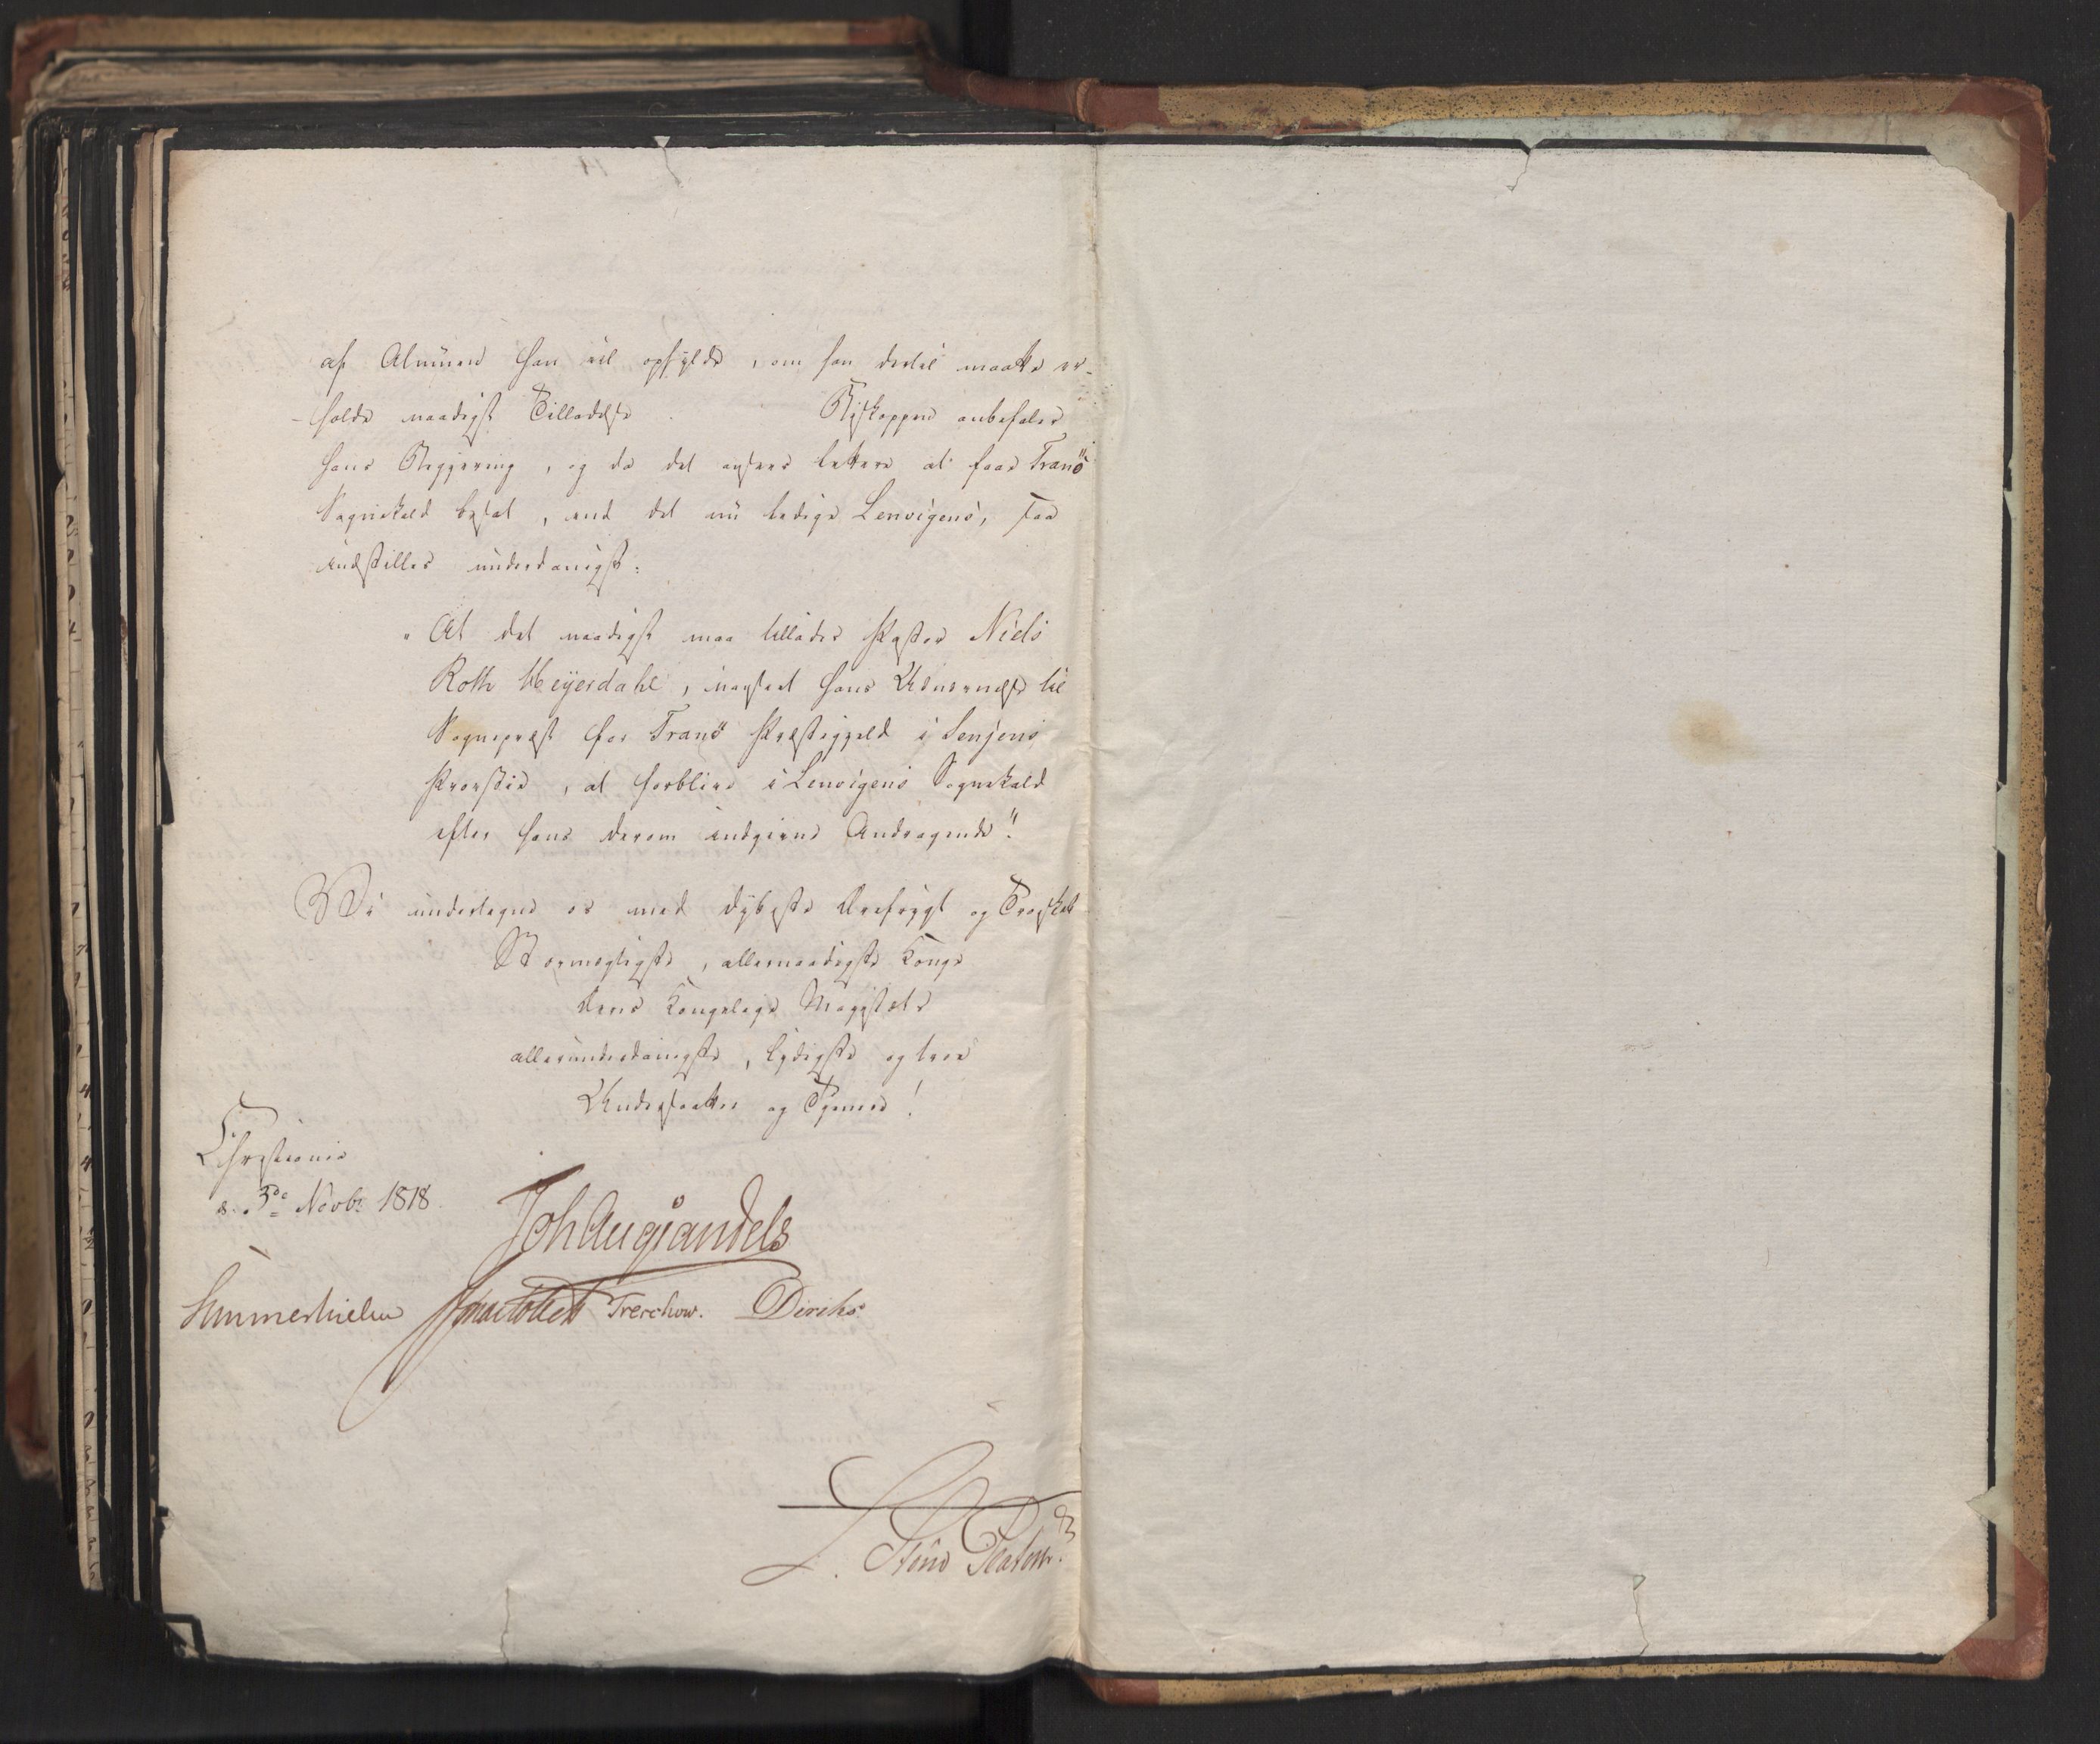 af Almuen han vil opfylde, om han dertil maatte er-
-holde naadigst Tilladelse. Biskoppen anbefaler
hans Begjering, og da det ansees lettere at faae Tranö
Sognekald besat, end det nu ledige Lenvigens, saa
indstilles underdanigst:
"At det naadigst maa tillades Pastor Niels
Roth Heyerdahl, uagtet hans Udnævnelse til
Sognepræst for Tranö Præstegjeld i Senjens
Provstie, at forblive i Lenvigens Sognekald
efter hans derom indgivne Andragende".
Vi undertegne os med dybeste Ærefrygt og Troeskab
Stormægtigste, allernaadigste Konge
Deres Kongelige Majestæts
allerunderdanigste, lydigste og troe
Undersaatter og Tjenere!
Christiania
d. 3de Novbr 1818.
Joh Aug Sandels
Sommerhielm Jonas Collett Treschow. Diriks.
L. Stoud Platou